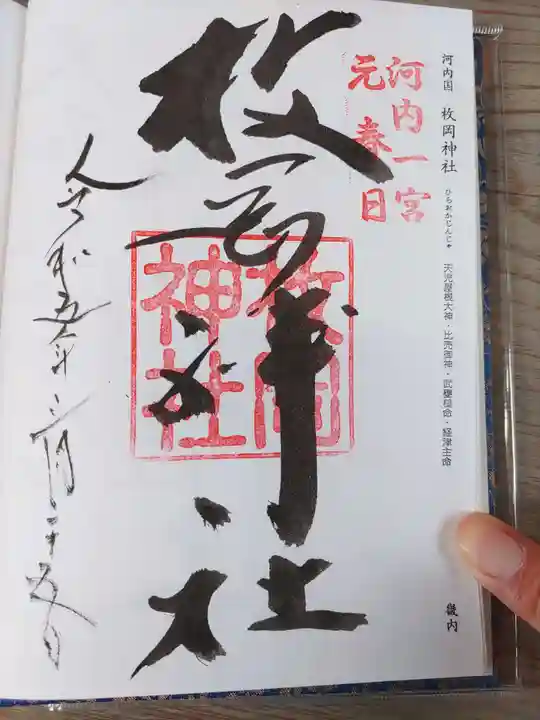 河内国 枚岡神社 ひらおかじんじゃ 天児屋根大神・比売御神・武甕槌命・経津主命
畿内
河内一宮
元春日
枚岡神社
枚岡
神社
令和五年三月二十五日